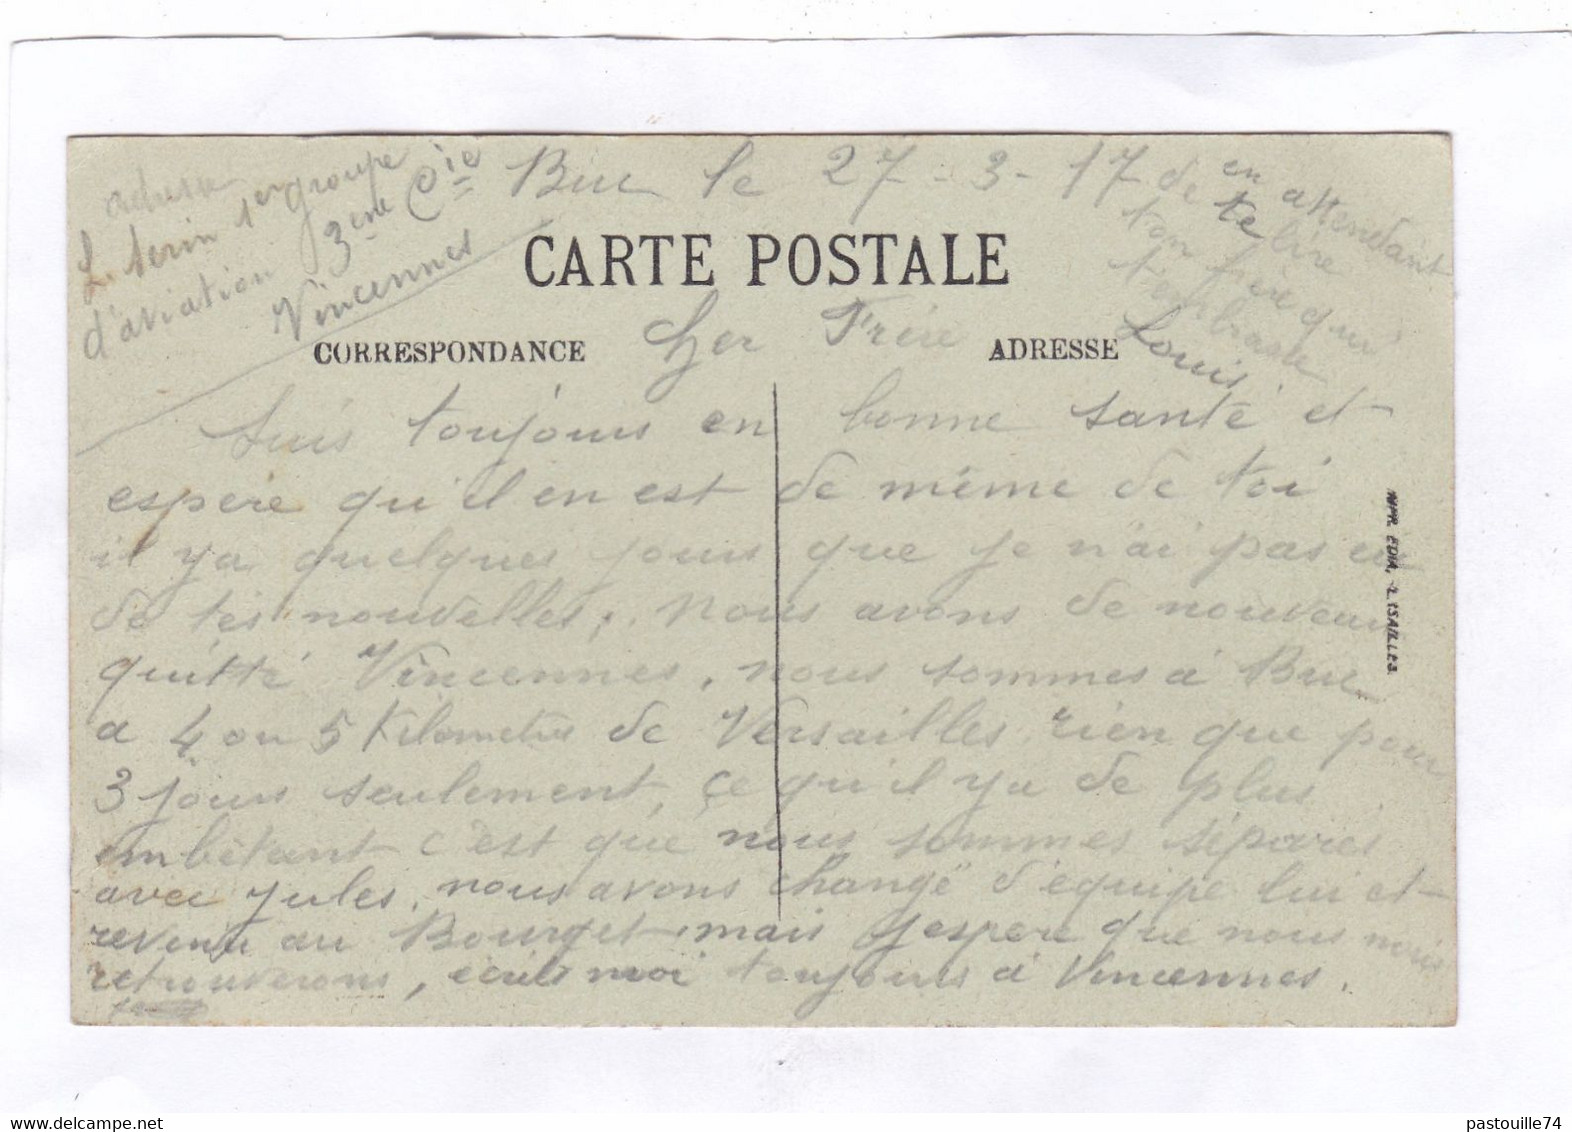 adresse
L. serin 1er groupe
d'aviation 3eme Cie
Vincennes
Buc le 27-3-17
CARTE POSTALE
CORRESPONDANCE
ADRESSE
Cher Frère
Suis toujours en bonne santé et
espère qu'il en est de même de toi
il ya quelques jours que je n'ai pas eu
de tes nouvelles, nous avons de nouveau
quitté Vincennes, nous sommes à Buc
a 4 ou 5 Kilometres de Versailles rien que pour
3 jours seulement, ce qu'il ya de plus
embêtant c'est que nous sommes séparés
avec Jules, nous avons changé d'équipe lui et
revenu au Bourget, mais j'espere que nous nous
retrouverons, écris moi toujours à Vincennes.
en attendant
de te lire
ton frère qui
t'embrasse
Louis
IMPR. EDIA, VERSAILLES.
pastouille74